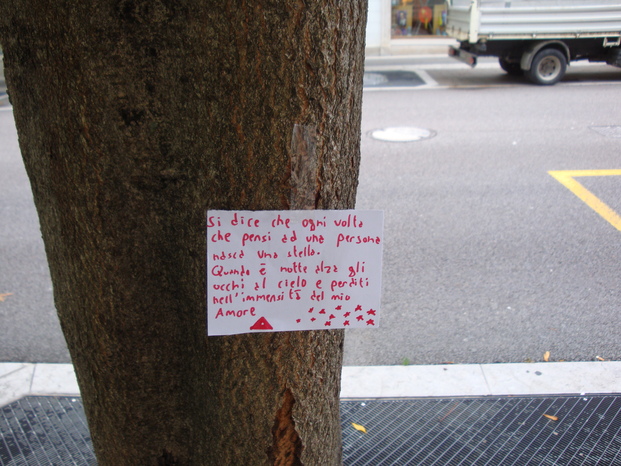 Si dice che ogni volta
che pensi ad una persona
nasca una stella.
Quando è notte alza gli
occhi al cielo e perditi
nell'immensità del mio
Amore